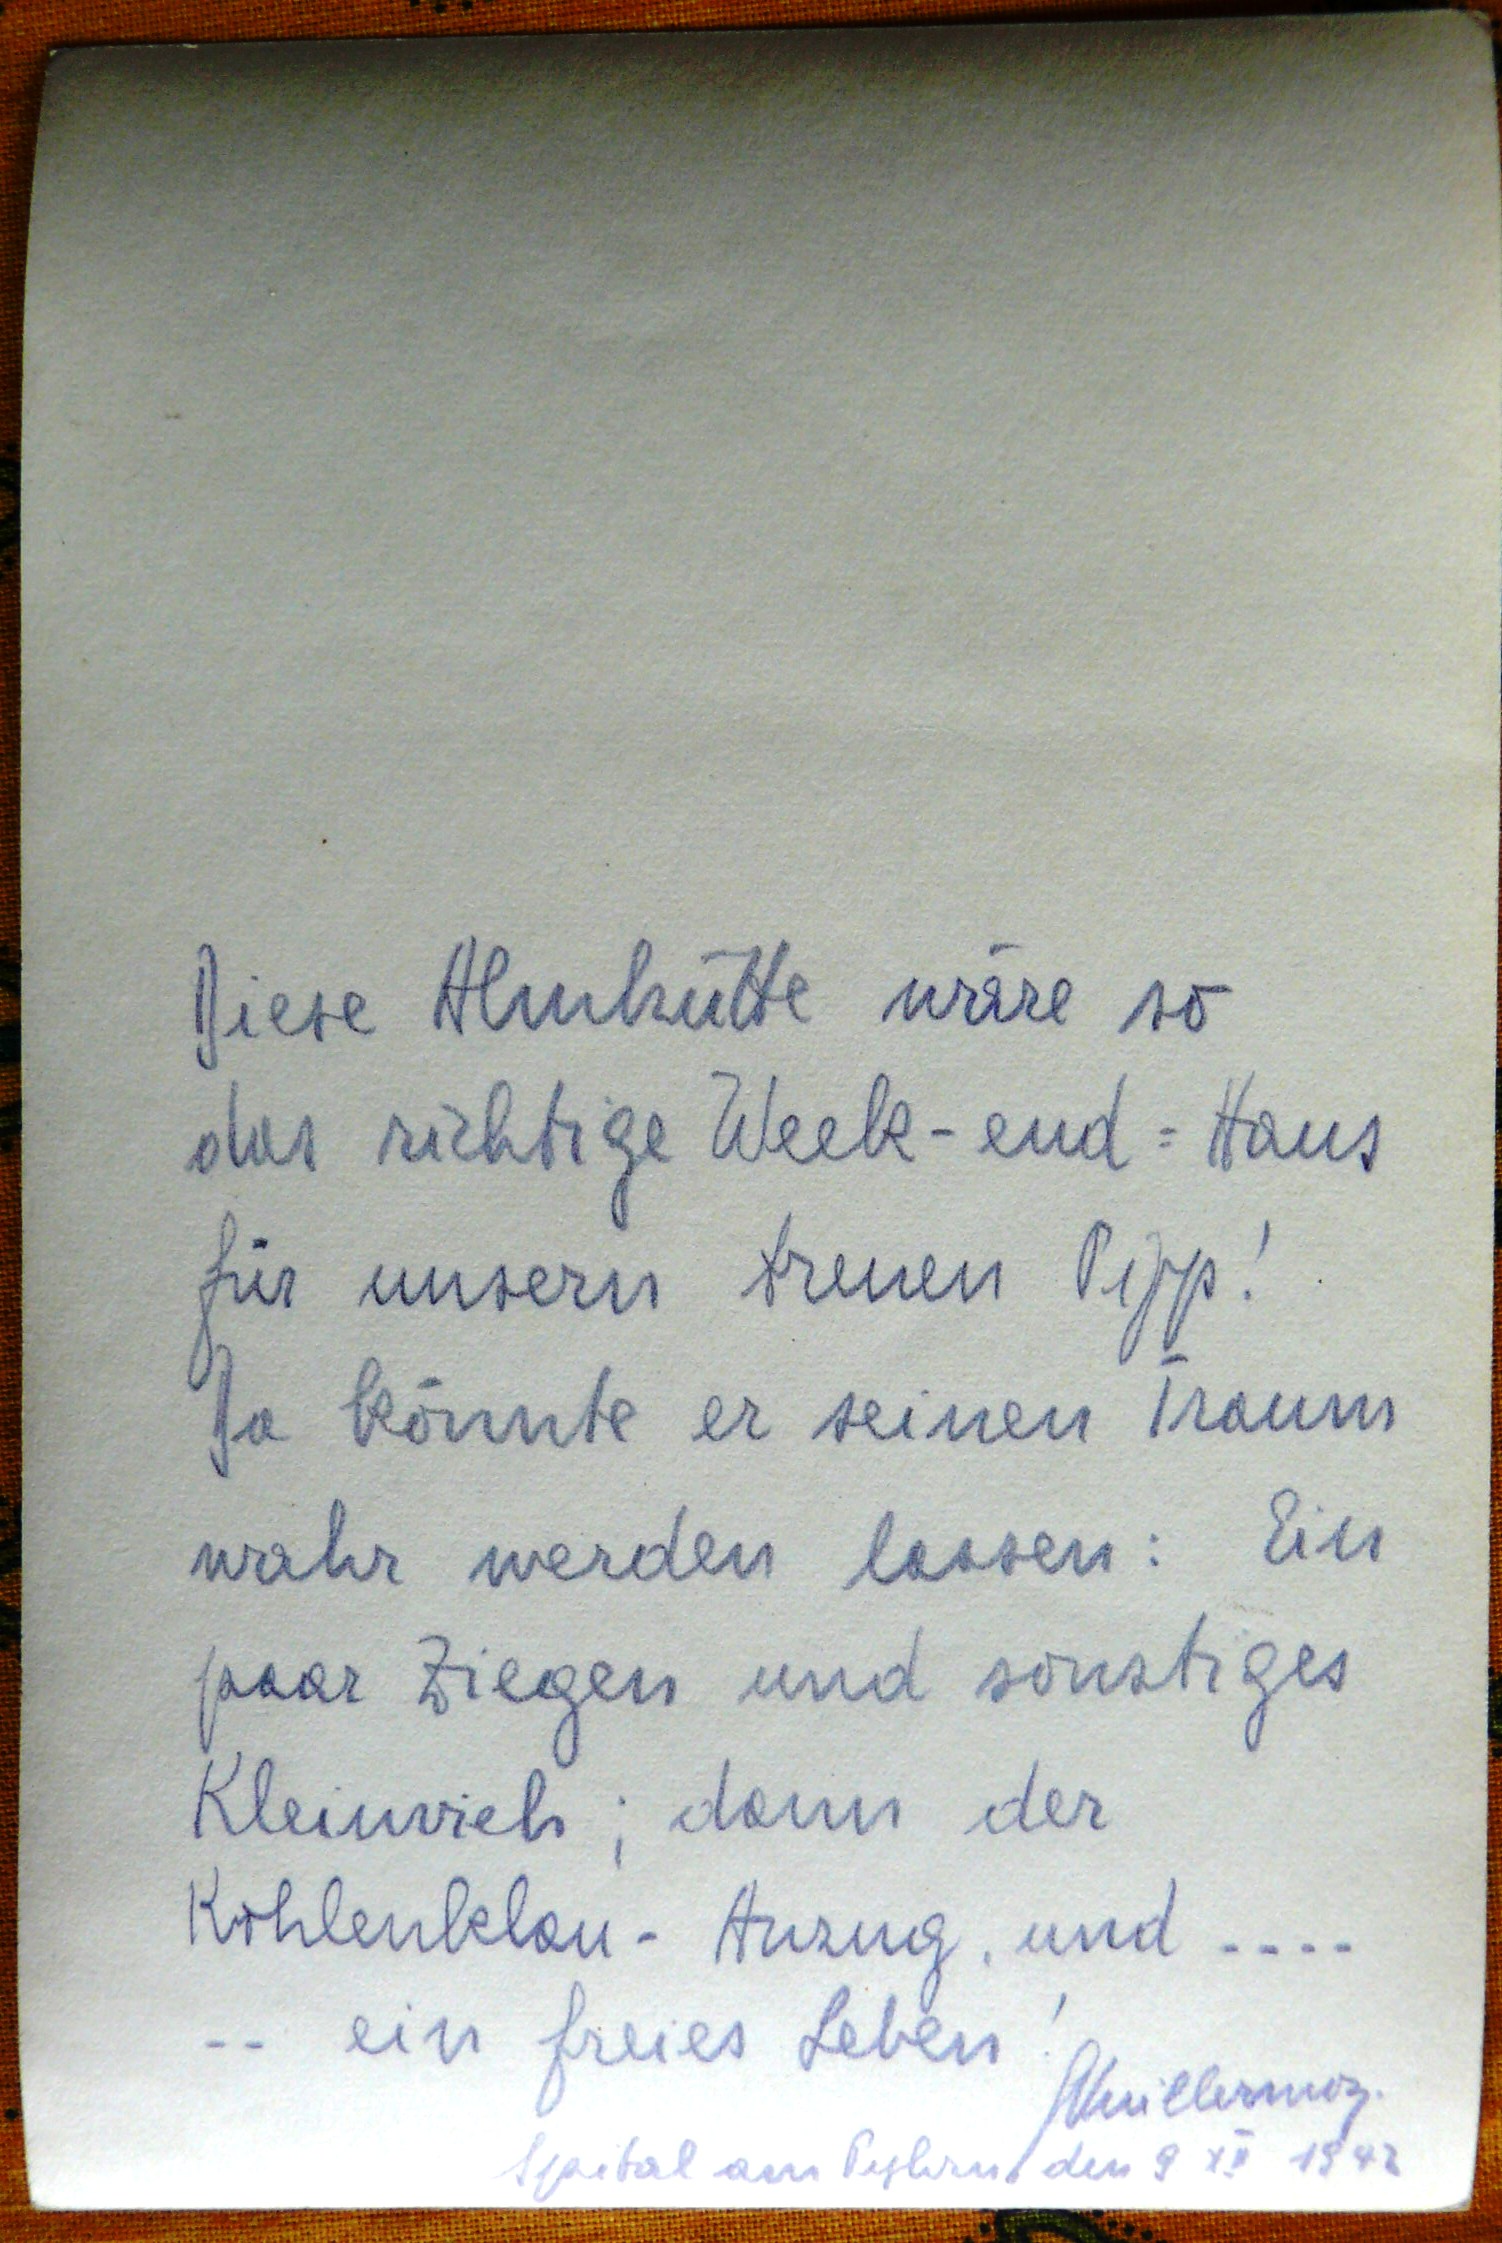 Diese Almhütte wäre so
das richtige Week-end=Haus
für unsern treuen Pipp!
Da könnte er seinen Traum
wahr werden lassen: Ein
paar Ziegen und sonstiges
Kleinvieh; dann der
Kohlenklau- Anzug, und ----
-- ein freies Leben!
Guillermoz.
Spital am Pyhrn, den 9 XII 1942